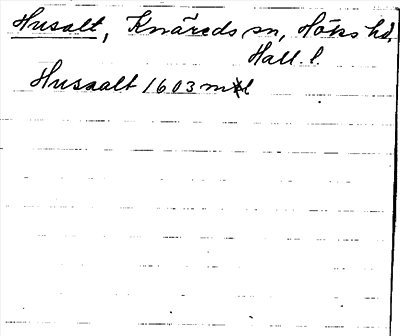 Husalt, Knäreds sn, Höks hd.
Hall. l.
Husaalt 1603 mtl